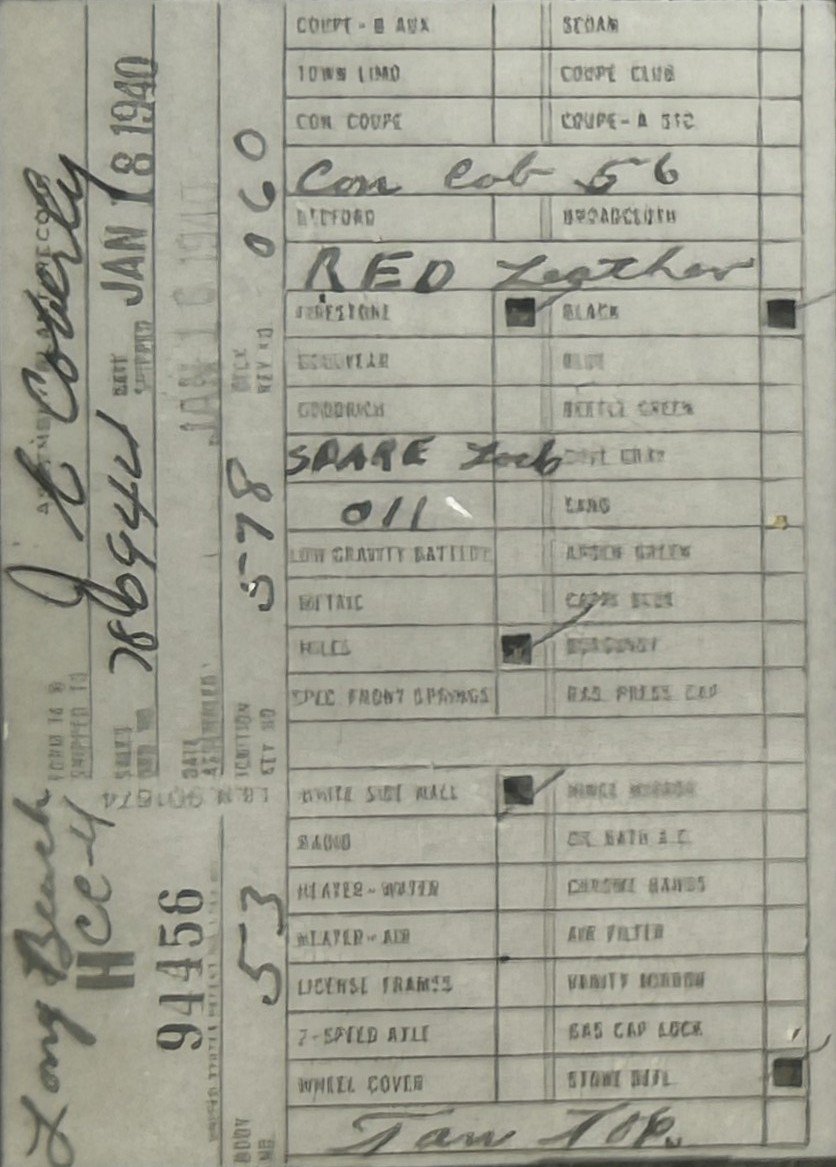 COUPE - B AUX SEDAN
TOWN LIMO COUPE CLUB
CON COUPE COUPE - A STD
Con Cab 56
BEDFORD BROADCLOTH
RED Leather
FIRESTONE BLACK
GOODYEAR BLUE
GOODRICH BEETLE GREEN
SPARE Lock COVE GRAY
011
LOW GRAVITY BATTERY GREEN
METRIC CAPRI BLUE
MILES BURGUNDY
SPEC FRONT SPRINGS RAD PRESS CAP
WHITE SIDE WALL HINGE MIRROR
RADIO OIL BATH A.C.
HEATER - WATER CHROME BANDS
HEATER - AIR AIR FILTER
LICENSE FRAMES VANITY MIRROR
2-SPEED AXLE GAS CAP LOCK
WHEEL COVER STONE DEFL
Tan Top.
FORM 16 B
SHIPPED TO
J E Coverly
Long Beach
HCC-4
SALES ORD NO 786944
DATE SHIPPED JAN 18 1940
94456
DATE ASSEMBLED JAN 16 1940
BODY NO. 53
IGNITION KEY NO 578
DECK KEY NO 060